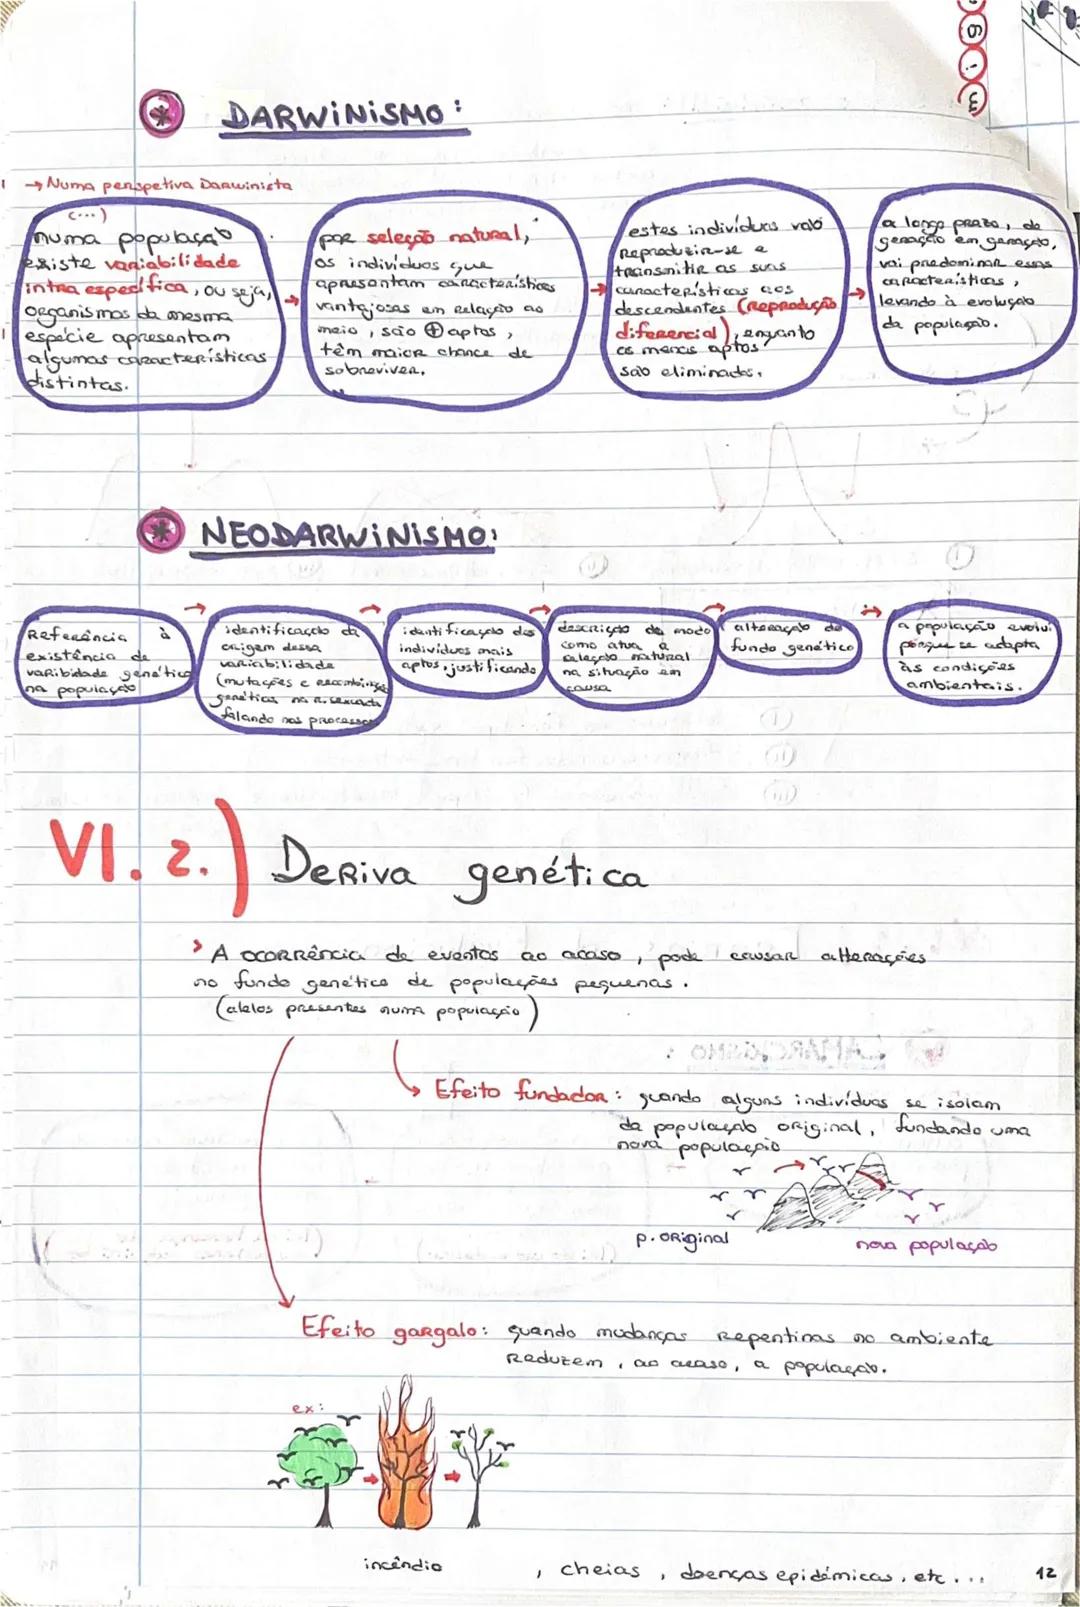 DARWINISMO:
→ Numa perspetiva Darwinista
(...)
numa população
existe variabilidade
intra específica, ou seja,
organismos da mesma
espécie apresentam
algumas características
distintas.
por seleção natural,
os indivíduos que
apresentam características
vantajosas em relação ao
meio, são + aptos,
têm maior chance de
sobreviver.
estes indivíduos vão
reproduzir-se e
transmitir as suas
características aos
descendentes (reprodução
diferencial), enquanto
os menos aptos
são eliminados.
a longo prazo, de
geração em geração,
vai predominar essas
características,
levando à evolução
da população.
NEODARWINISMO:
Referência à
existência de
varibidade genética
na população
identificação da
origem dessa
variabilidade
(mutações e recombinação
genéticas na r. sexuada
falando nos processos
identificação dos
indivíduos mais
aptos, justificando
descrição do modo
como atua a
seleção natural
na situação em
causa
alteração do
fundo genético
a população evolui
porque se adapta
às condições
ambientais.
VI. 2.) Deriva genética
> A ocorrência de eventos ao acaso, pode causar alterações
no fundo genético de populações pequenas.
(alelos presentes numa população)
Efeito fundador: quando alguns indivíduos se isolam
da população original, fundando uma
nova população
p. original
nova população
Efeito gargalo: quando mudanças repentinas no ambiente
reduzem, ao acaso, a população.
ex:
incêndio , cheias, doenças epidémicas, etc...
12